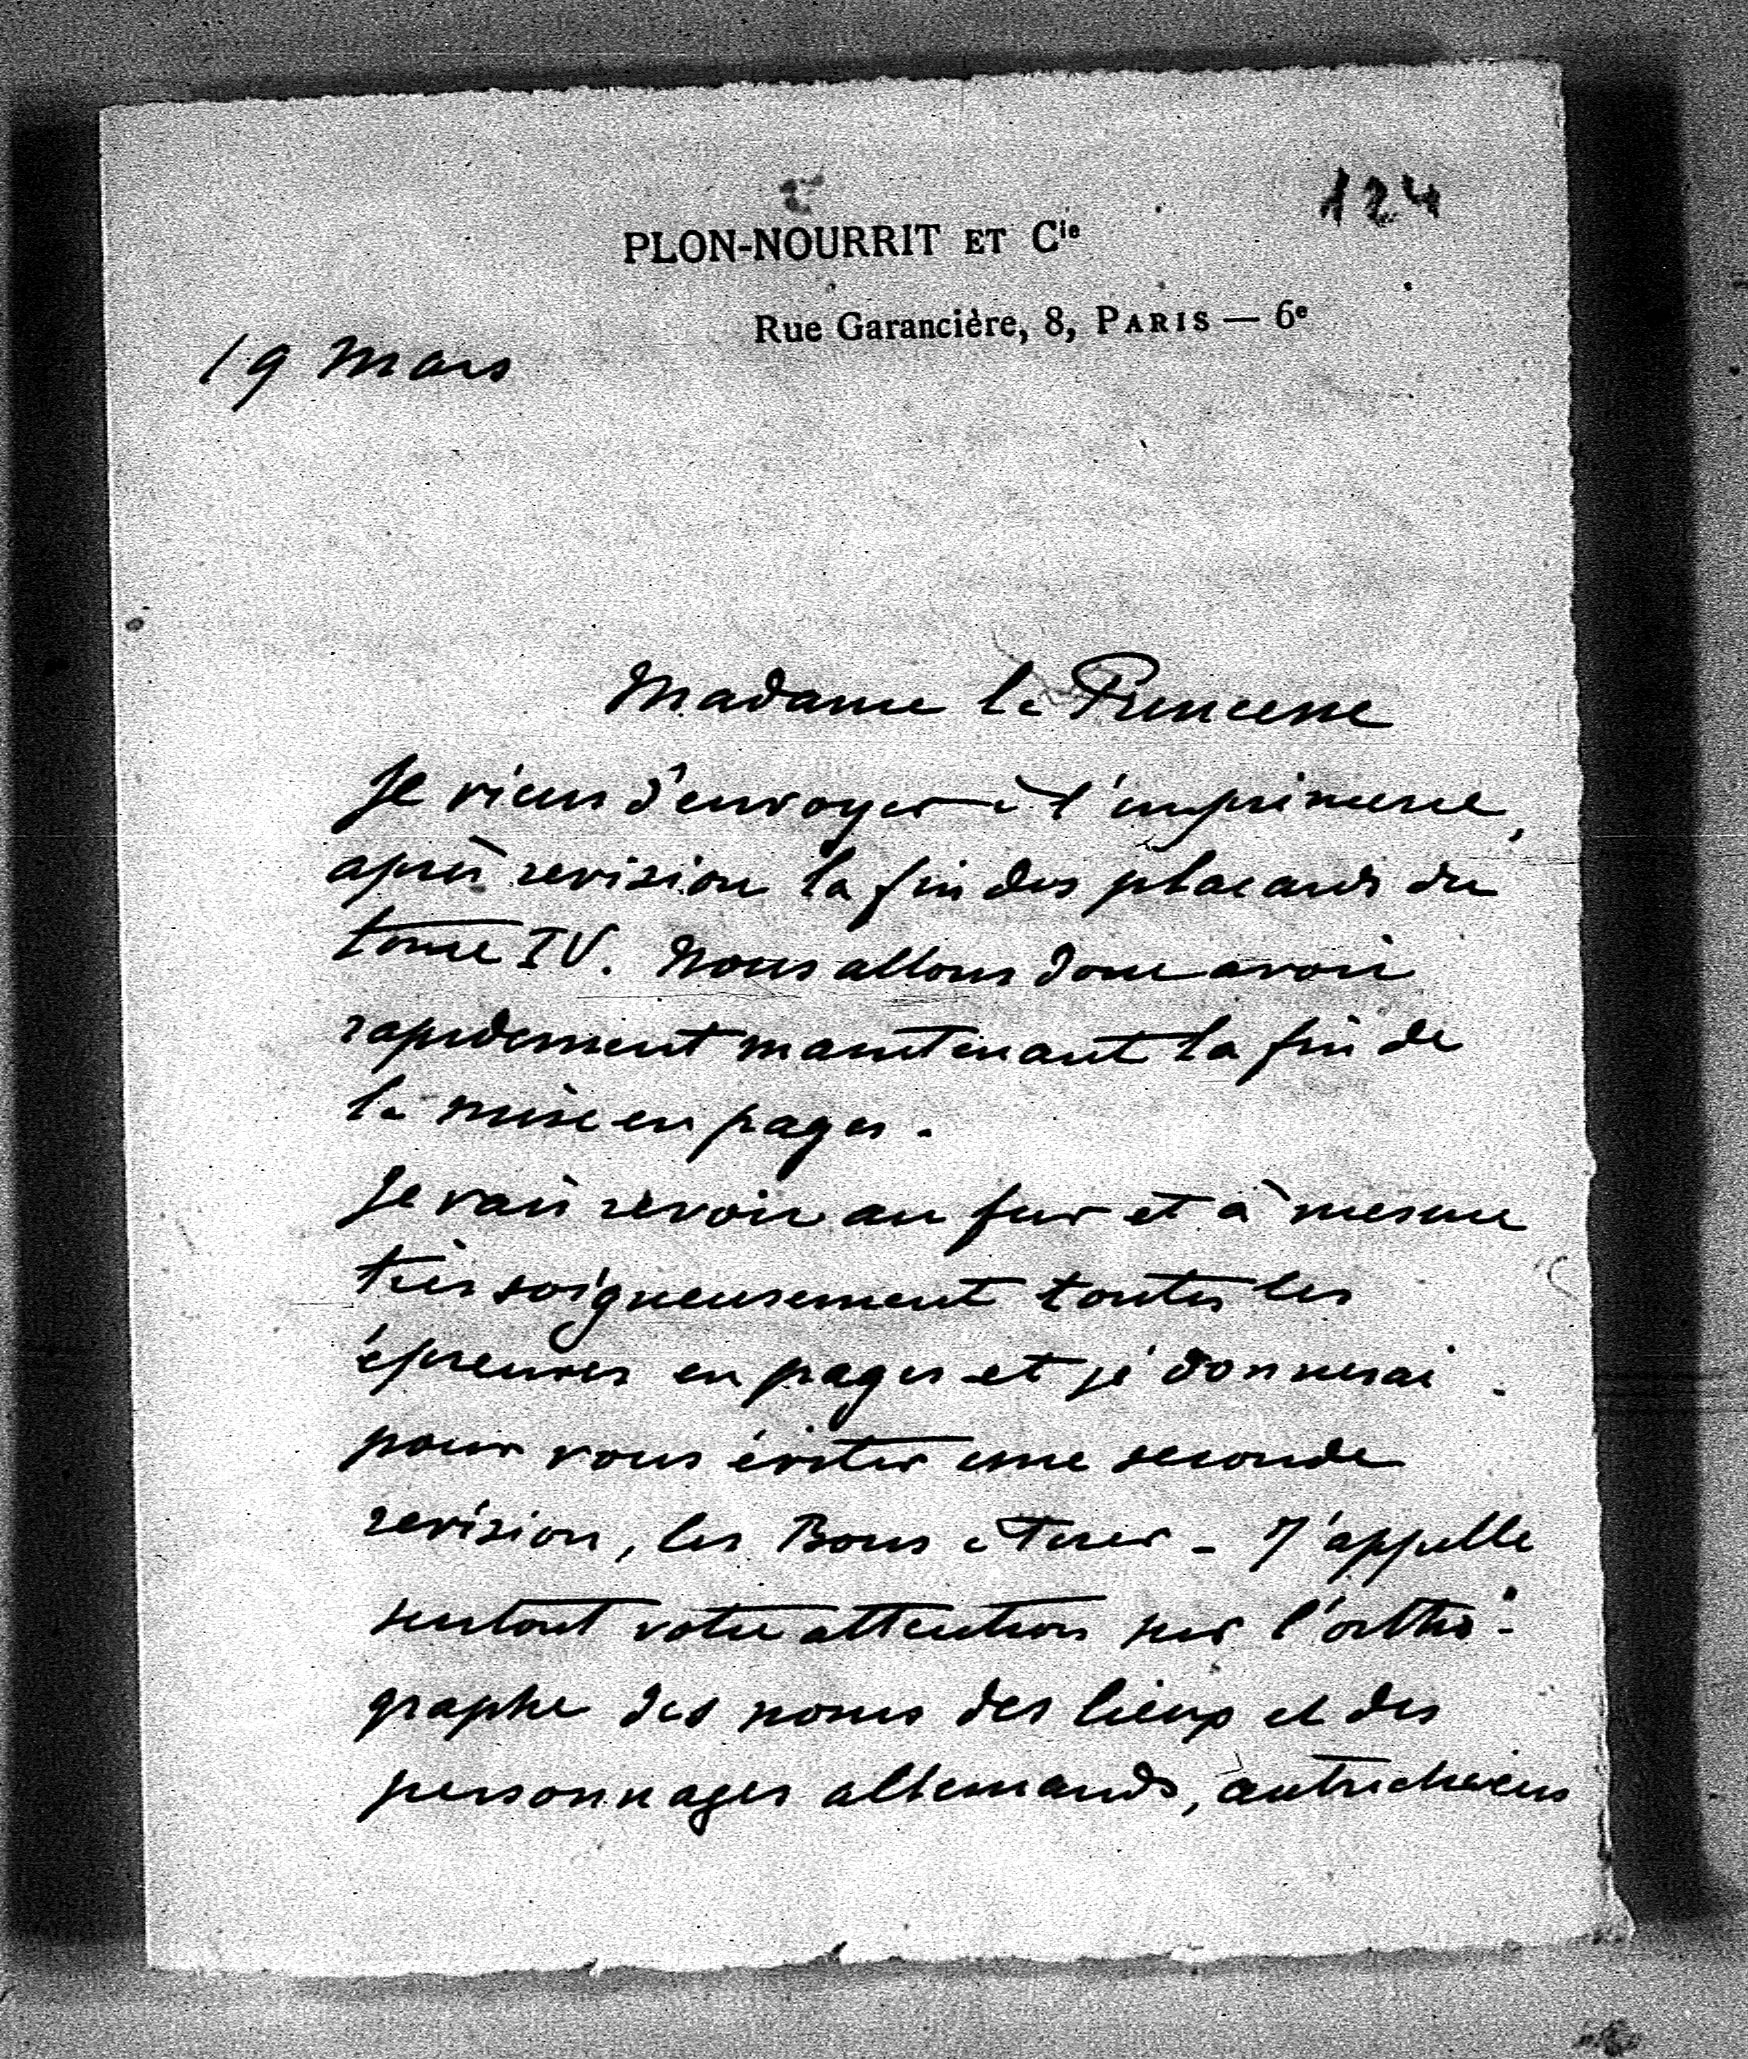 124
PLON-NOURRIT ET Cie
Rue Garancière, 8, PARIS — 6e
19 Mars
Madame la Princesse
Je viens d'envoyer à l'imprimerie,
après revision la fin des placards du
tome IV. Nous allons donc avoir
rapidement maintenant la fin de
la mise en pages.
Je vais revoir au fur et à mesure
très soigneusement toutes les
épreuves en pages et je donnerai
pour vous éviter une seconde
revision, les Bons à Tirer - J'appelle
surtout votre attention sur l'ortho-
graphe des noms des lieux et des
personnages allemands, autrichiens